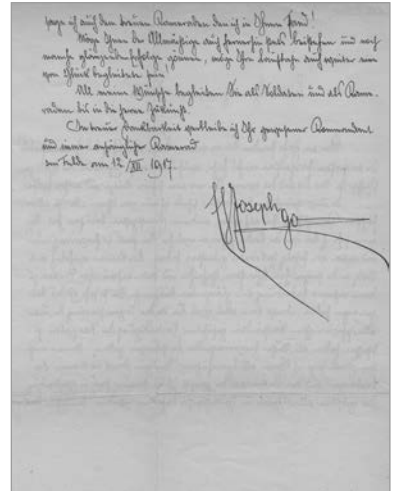 sage ich auch dem treuen Kameraden den ich in Ihnen fand!
Möge Ihnen der Allmächtige auch fernerhin stets beistehen und noch
manche glänzende Erfolge gönnen, möge Ihre Laufbahn auch weiter nur
von Glück begleitet sein
All meine Wünsche begleiten Sie als Soldaten und als Kame-
raden bis in die ferne Zukunft.
In treuer Dankbarkeit verbleibe ich Ihr gewesener Kommandant
und immer anhänglicher Kamerad
im Felde am 12/XII 1917
Joseph